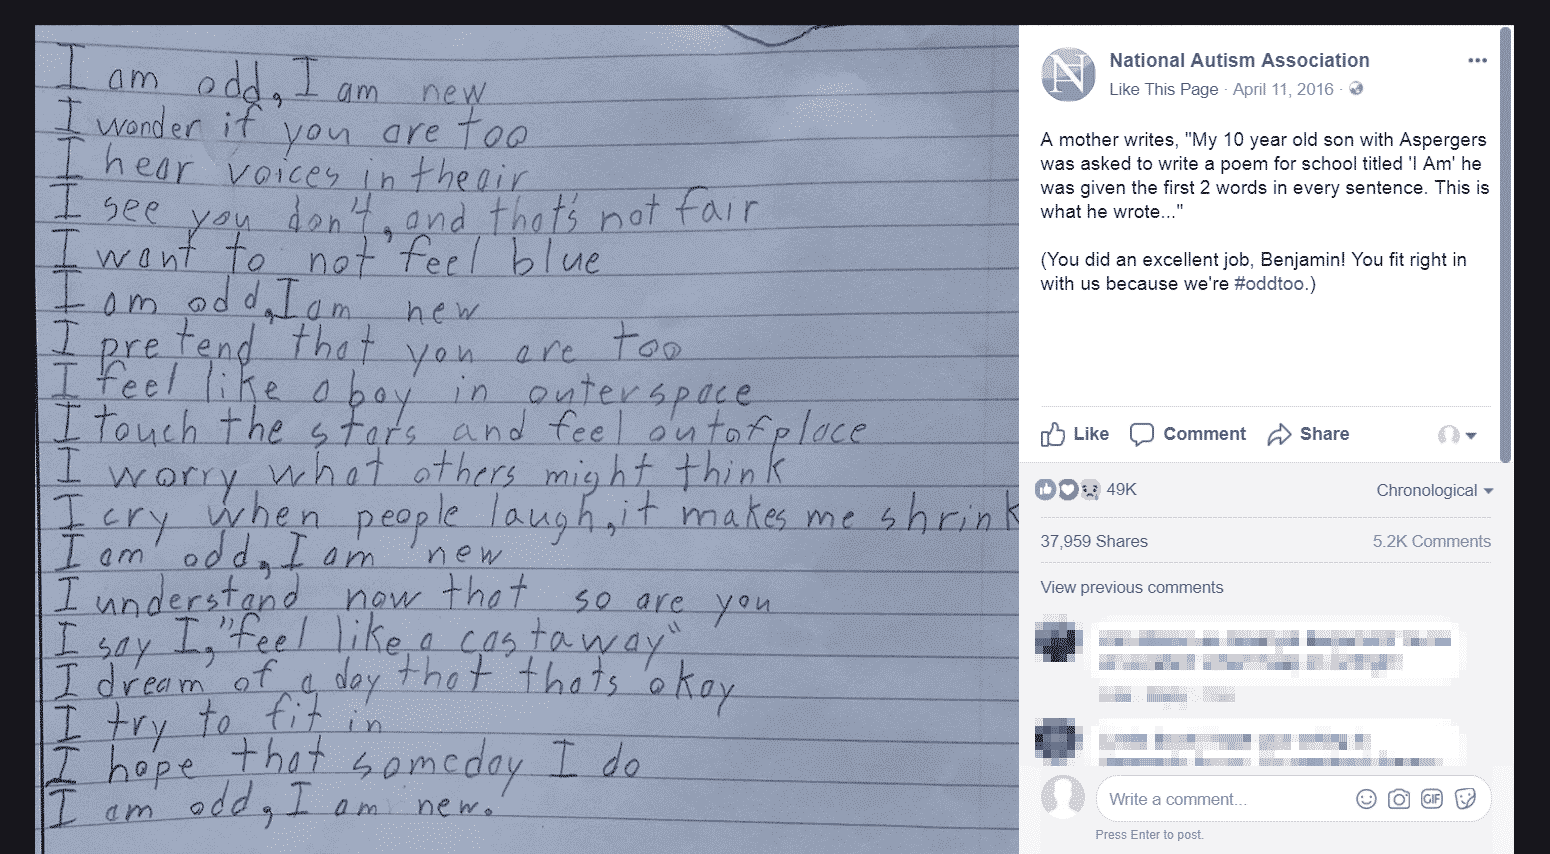 I am odd, I am new
I wonder if you are too
I hear voices in the air
I see you don't, and that's not fair
I want to not feel blue
I am odd, I am new
I pretend that you are too
I feel like a boy in outerspace
I touch the stars and feel out of place
I worry what others might think
I cry when people laugh, it makes me shrink
I am odd, I am new
I understand now that so are you
I say I, "feel like a castaway"
I dream of a day that thats okay
I try to fit in
I hope that someday I do
I am odd, I am new.
National Autism Association
Like This Page · April 11, 2016 ·
A mother writes, "My 10 year old son with Aspergers
was asked to write a poem for school titled 'I Am' he
was given the first 2 words in every sentence. This is
what he wrote..."
(You did an excellent job, Benjamin! You fit right in
with us because we're #oddtoo.)
Like Comment Share
49K Chronological
37,959 Shares 5.2K Comments
View previous comments
Write a comment... GIF
Press Enter to post.